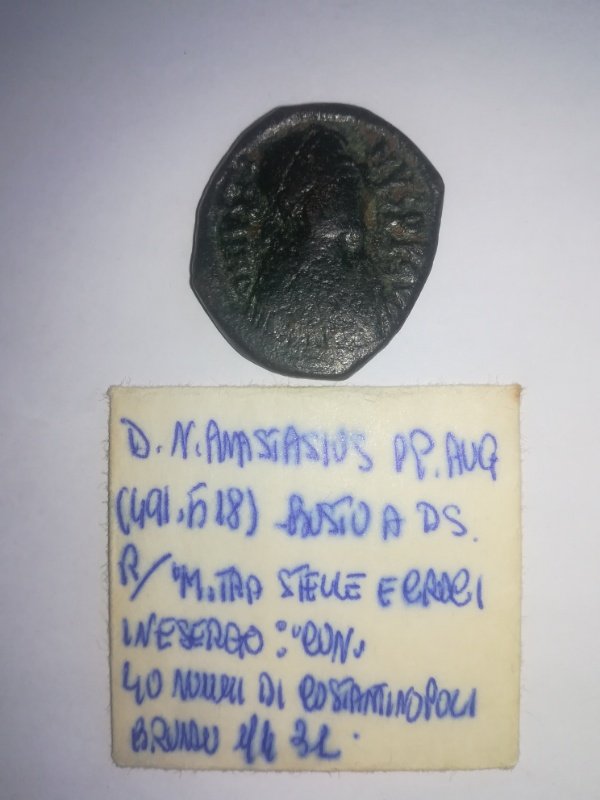 D. N. ANASTASIUS PP. AUG
(491.518) BUSTO A DS.
R/ "M" TRA STELLE E CROCI
IN ESERGO: "CON"
40 NUMMI DI COSTANTINOPOLI
BRONZO